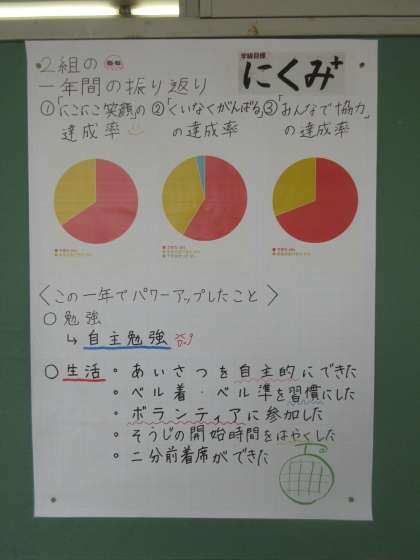 2組の
一年間の振り返り
学級目標
にくみ+
①「にこにこ笑顔」の達成率
②「くいなくがんばる」の達成率
③「みんなで協力」の達成率
〈この一年でパワーアップしたこと〉
○勉強
↳自主勉強
○生活
・あいさつを自主的にできた
・ベル着・ベル準を習慣にした
・ボランティアに参加した
・そうじの開始時間をはやくした
・二分前着席ができた